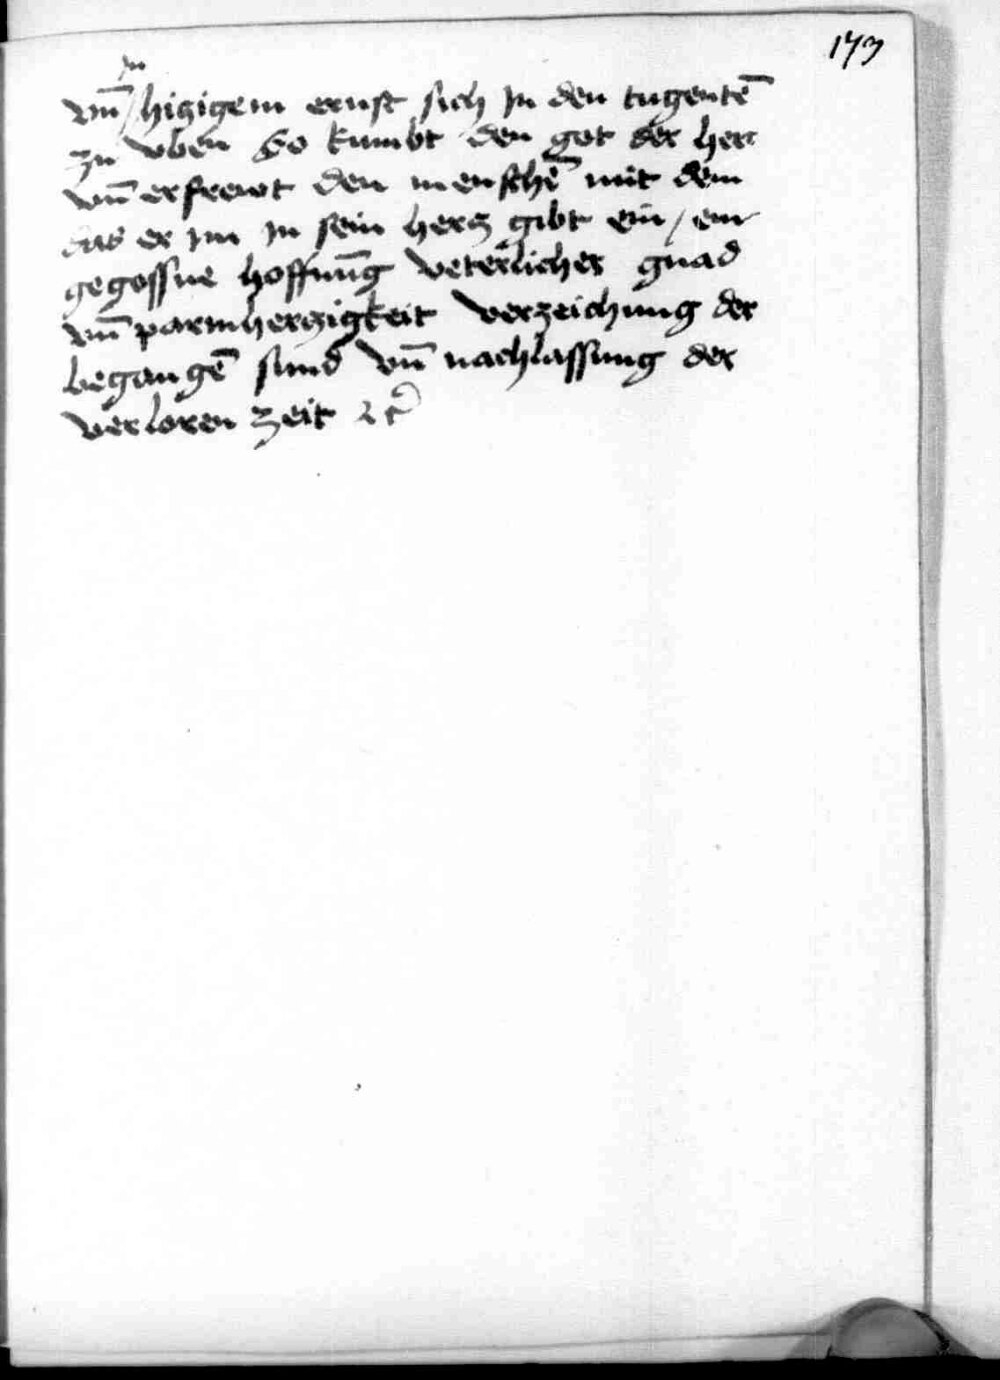 173
jn
vnd̄ / hiczigem ernst sich jn den tugentē
zu vben So kumbt den got der herr
vnd̄ erfrewt den menschē mit dem
das er jm jn sein hercz gibt ein / ein
gegossne hoffnūg veterlicher gnad
vnd̄ parmherczigkeit verzeichung der
begangē sund vnd̄ nachlassung der
verloren zeit ⁊c̄